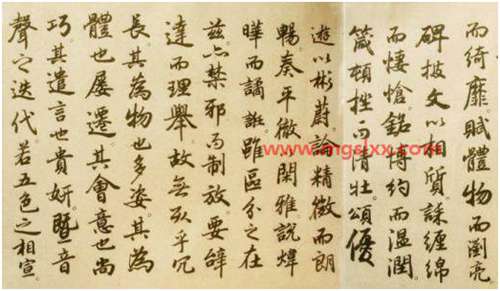 而綺靡賦體物而瀏亮
碑披文以相質誄纏綿
而悽愴銘博約而溫潤
箴頓挫而清壯頌優
遊以彬蔚論精微而朗
暢奏平徹閑雅說煒
曄而譎誑雖區分之在
茲亦禁邪而制放要辭
達而理舉故無取乎冗
長其為物也多姿其為
體也屢遷其會意也尚
巧其遣言也貴妍暨音
聲之迭代若五色之相宣
www.mgslxx.com